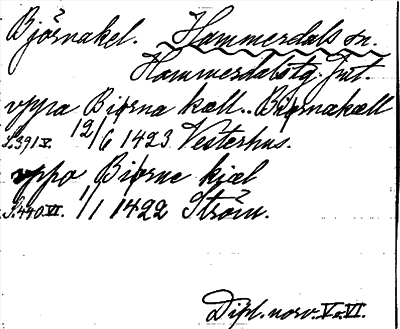 Björnakel. Hammerdals sn.
Hammerdals tg. Jmt.
vppa Biørna kæll.. Biørnakæll
S.391 V. 12/6 1423 Vesterhus.
vppo Biørne kjæl
S.440 VI. 1/1 1422 Ström.
Dipl. norv. V o. VI.